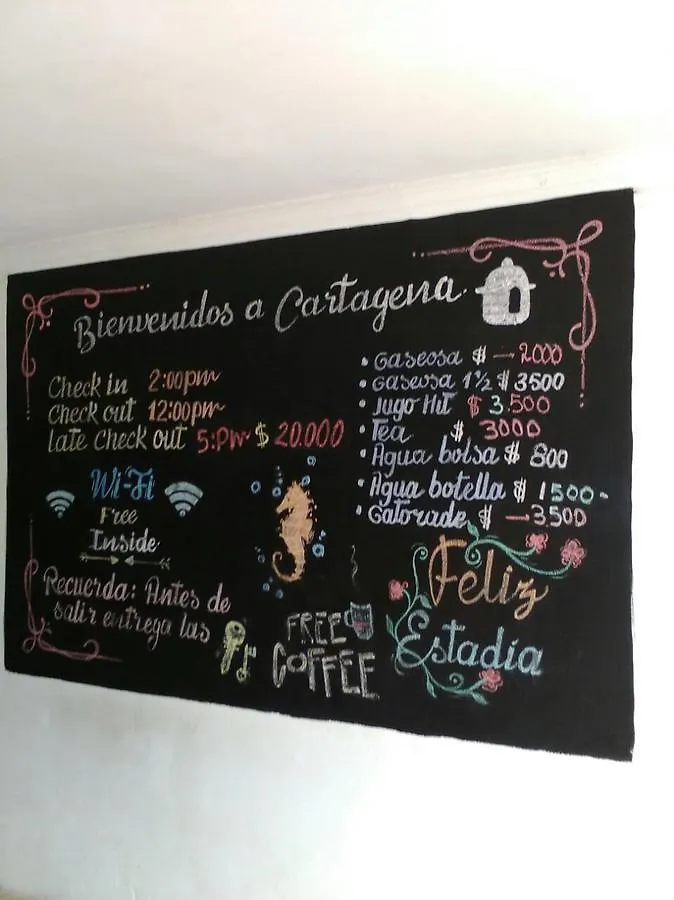 Bienvenidos a Cartagena
Check in 2:00pm
Check out 12:00pm
late Check out 5:Pm $ 20.000
Wi-Fi
Free
Inside
Recuerda: Antes de
salir entrega las
• Gaseosa $ — 2000
• Gaseosa 1½ $ 3500
• Jugo Hit $ 3.500
• Tea $ 3000
• Agua bolsa $ 800
• Agua botella $ 1500-
• Gatorade $ — 3.500
FREE
COFFEE
Feliz
Estadía